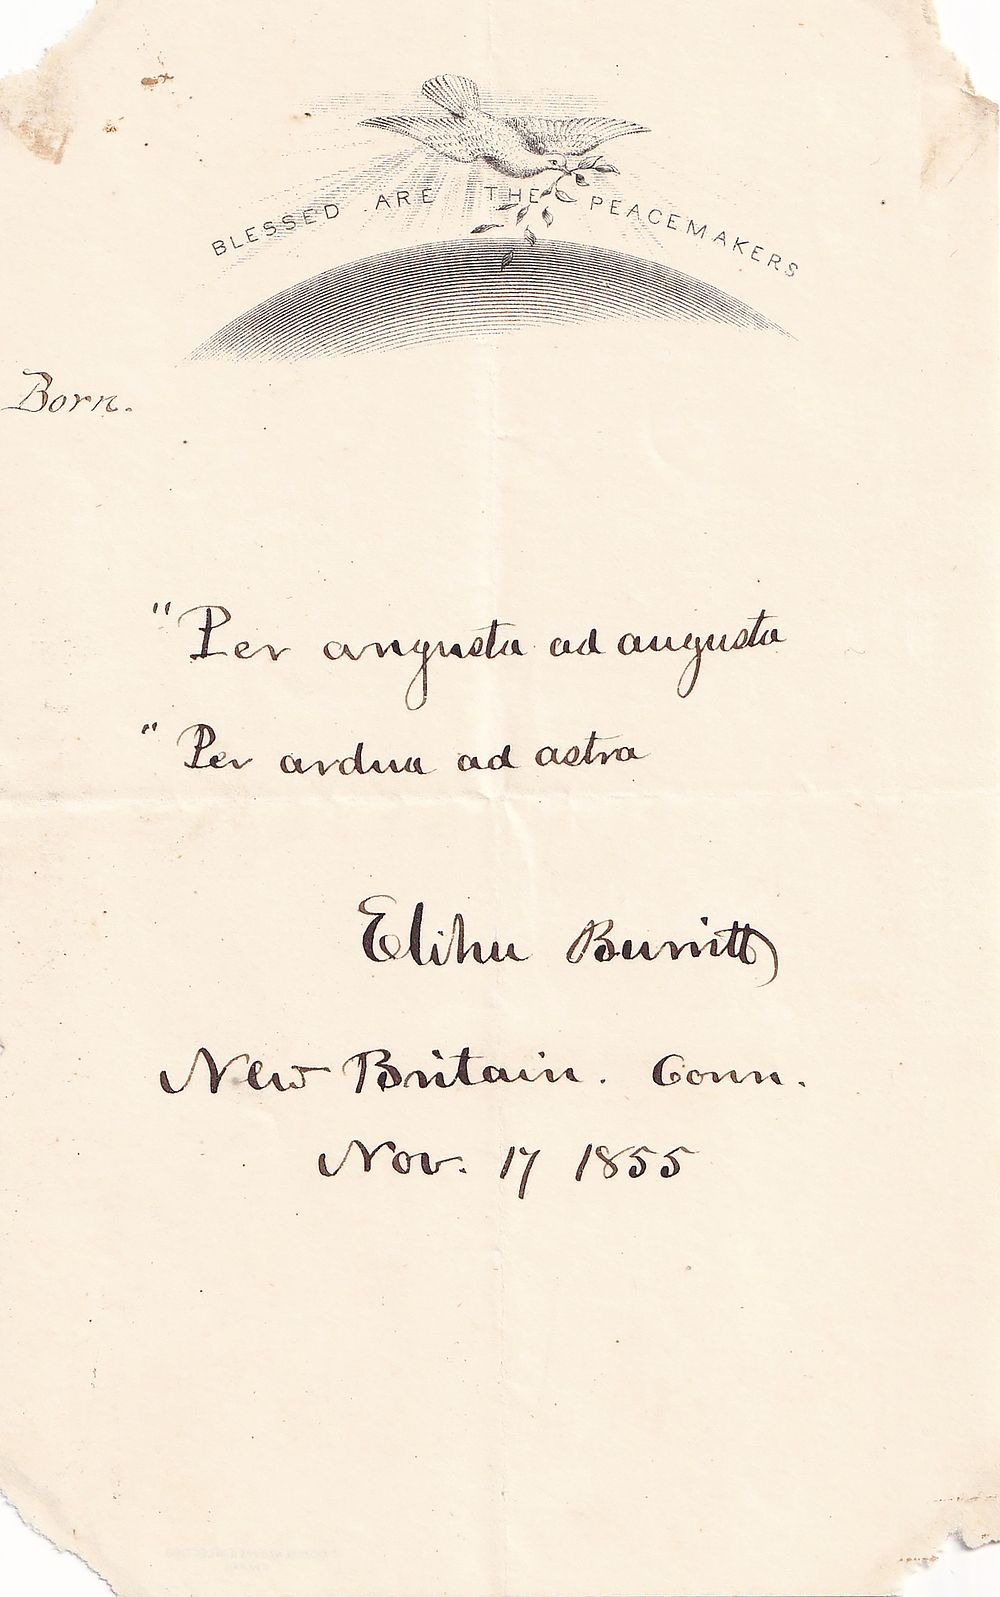 BLESSED ARE THE PEACEMAKERS
Born.
"Per angusta ad augusta
"Per ardua ad astra
Elihu Burritt
New Britain. Conn.
Nov. 17 1855